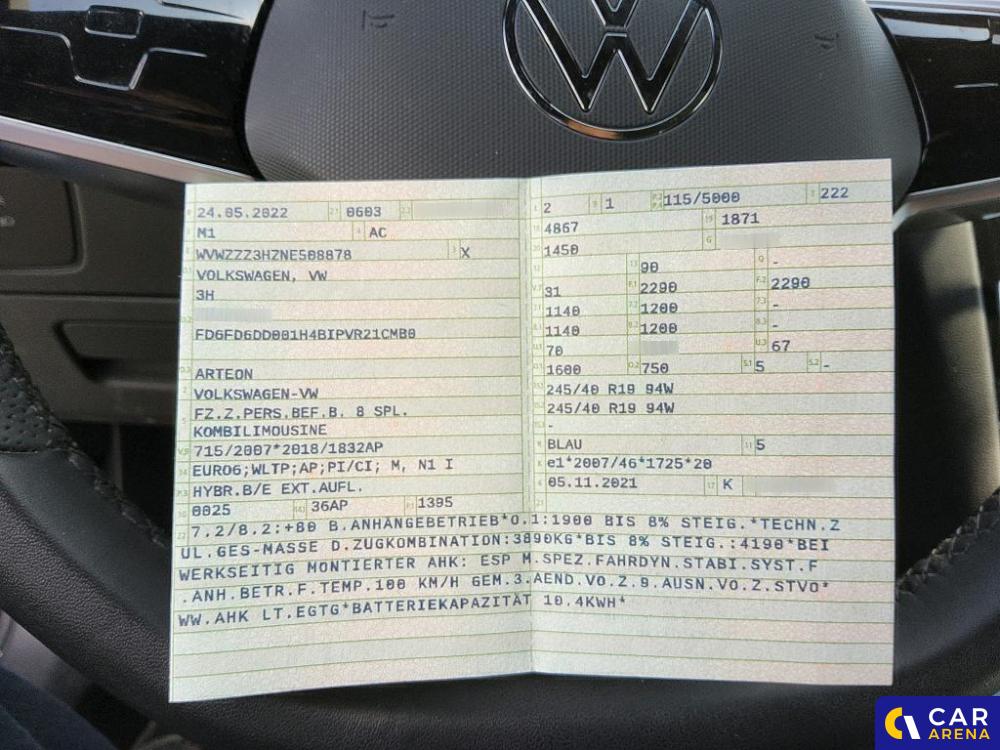 24.05.2022 0603
M1 AC
WVWZZZ3HZNE508878 X
VOLKSWAGEN, VW
3H
FD6FD6DD001H4BIPVR21CMB0
ARTEON
VOLKSWAGEN-VW
FZ.Z.PERS.BEF.B. 8 SPL.
KOMBILIMOUSINE
715/2007*2018/1832AP
EURO6;WLTP;AP;PI/CI; M, N1 I
HYBR.B/E EXT.AUFL.
0025 36AP 1395
2 1 115/5000 222
4867 1871
1450
90 -
31 2290 2290
1140 1200 -
1140 1200 -
70 67
1600 750 5 -
245/40 R19 94W
245/40 R19 94W
-
BLAU 5
e1*2007/46*1725*20
05.11.2021 K
7.2/8.2:+80 B.ANHÄNGEBETRIEB*O.1:1900 BIS 8% STEIG.*TECHN.Z
UL.GES-MASSE D.ZUGKOMBINATION:3890KG*BIS 8% STEIG.:4190*BEI
WERKSEITIG MONTIERTER AHK: ESP M.SPEZ.FAHRDYN.STABI.SYST.F
.ANH.BETR.F.TEMP.100 KM/H GEM.3.AEND.VO.Z.9.AUSN.VO.Z.STVO*
WW.AHK LT.EGTG*BATTERIEKAPAZITÄT 10.4KWH*
CAR
ARENA